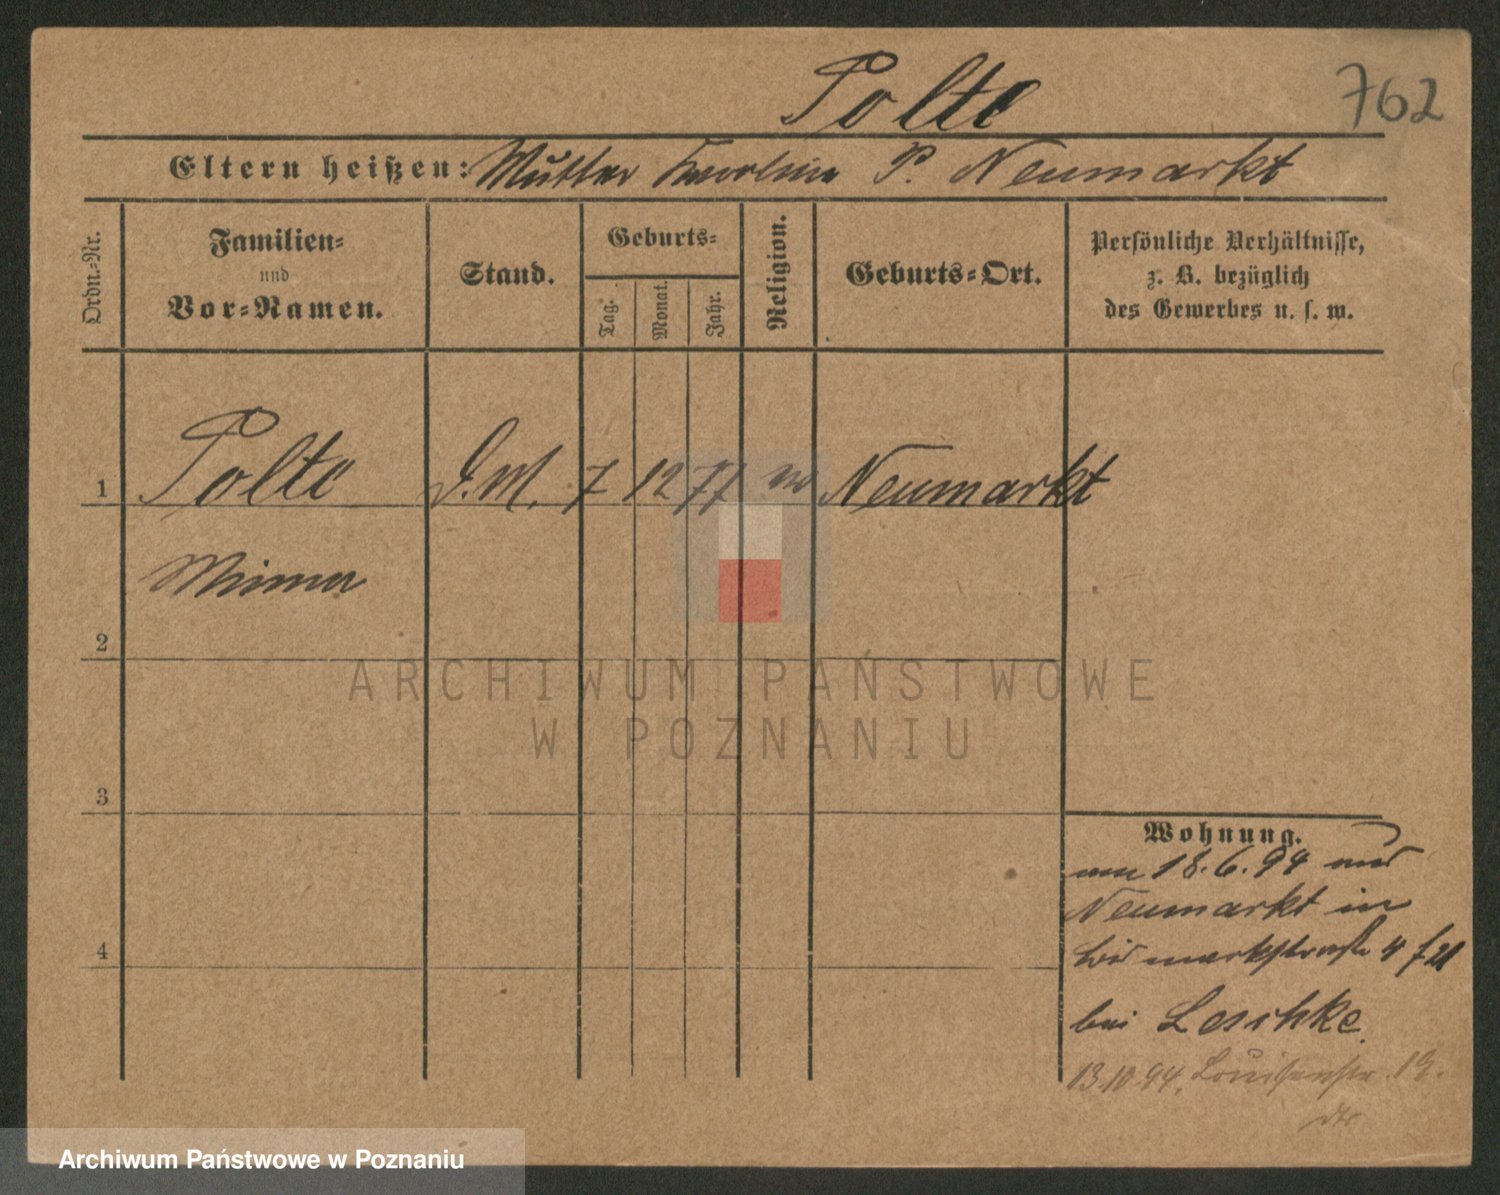 Polte
762
Eltern heißen: Mutter Karoline P. Neumarkt
Ordn.-Nr.
Familien- und Vor-Namen.
Stand.
Geburts-
Tag.
Monat.
Jahr.
Religion.
Geburts-Ort.
Persönliche Verhältnisse,
z. B. bezüglich
des Gewerbes u. s. w.
1 Polte D.M. 7 12 77 Neumarkt
Minna
2
3
4
Wohnung.
am 18.6.94 aus
Neumarkt in
Bismarkstraße 4
bei Leschke
13.10.94. Louisenstr. 19.
ARCHIWUM PAŃSTWOWE
W POZNANIU
Archiwum Państwowe w Poznaniu